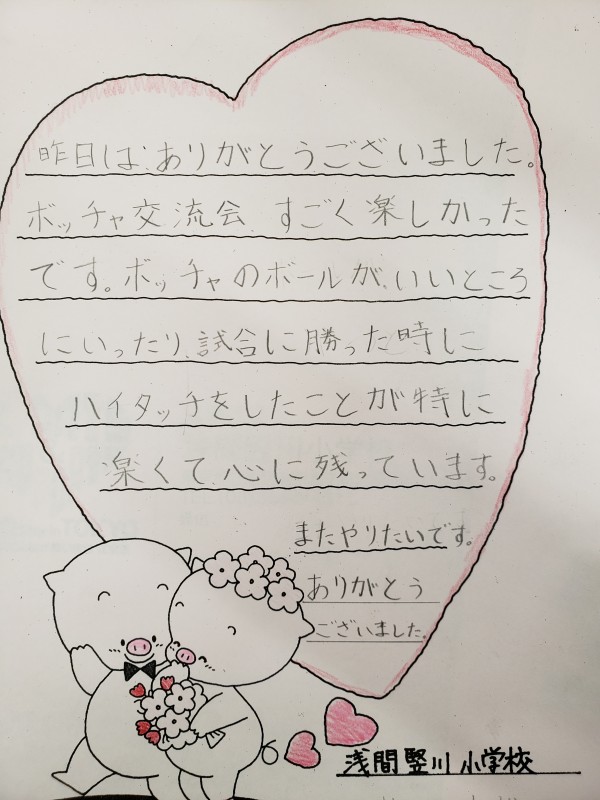 昨日は、ありがとうございました。
ボッチャ交流会、すごく楽しかった
です。ボッチャのボールが、いいところ
にいったり、試合に勝った時に
ハイタッチをしたことが特に
楽くて、心に残っています。
またやりたいです。
ありがとう
ございました。
浅間竪川小学校